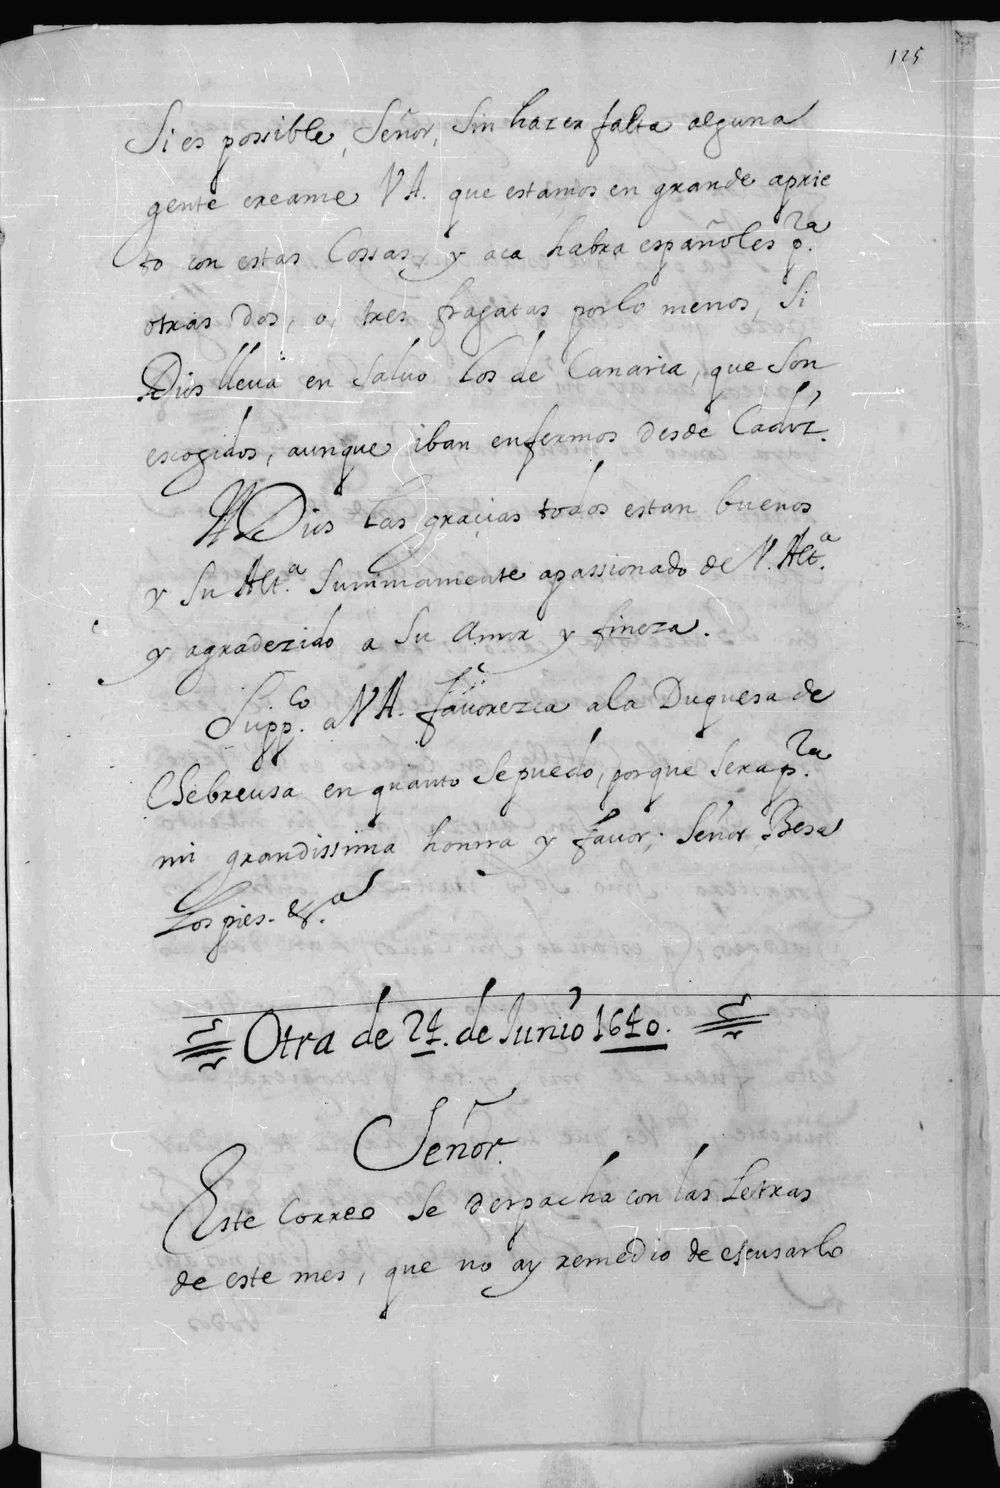 125
Si es possible, Señor, sin hazer falta alguna
gente creame V A. que estamos en grande aprie
to con estas Cossas, y aca habra españoles p.ra
otras dos, o, tres fragatas por lo menos, Si
Dios lleva en salvo los de Canaria, que son
escogidos, aunque iban enfermos desde Cadiz.
A Dios las gracias todos estan buenos
y su Alt.a summamente apassionado de V. Alt.a
y agradezido a su Amor y fineza.
Supp.co a V A. favorezca a la Duquesa de
Chebreusa en quanto se puedo, porque sera p.ra
mi grandissima honrra y favor; Señor, Besa
Los pies. &.a
Otra de 24. de Junio 1640.
Señor.
Este Correo se despacha con las Letras
de este mes, que no ay remedio de escusarlo